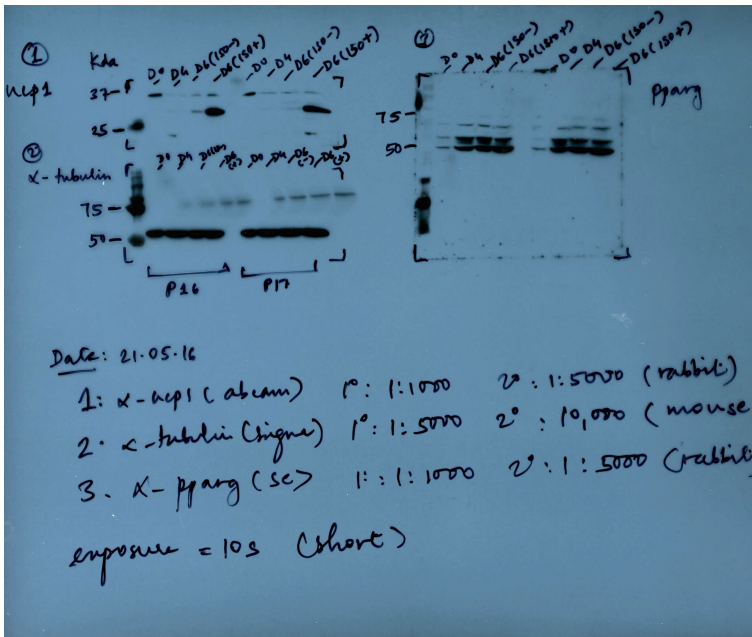 ①
Kda
ucp1
D0 D4 D6(150-) D6(150+) D0 D4 D6(150-) D6(150+)
37-
25-
②
α-tubulin
D0 D4 D6(-) D6(+) D0 D4 D6(-) D6(+)
75-
50-
P16 P17
D0 D4 D6(150-) D6(150+) D0 D4 D6(150-) D6(150+)
Pparg
75-
50-
Date: 21.05.16
1: α-ucp1 (abcam) 1°: 1:1000 2°: 1:5000 (rabbit)
2. α-tubulin (sigma) 1°: 1:5000 2°: 10,000 (mouse
3. α-pparg (sc) 1°: 1:1000 2°: 1:5000 (rabbit
exposure = 10s (short)